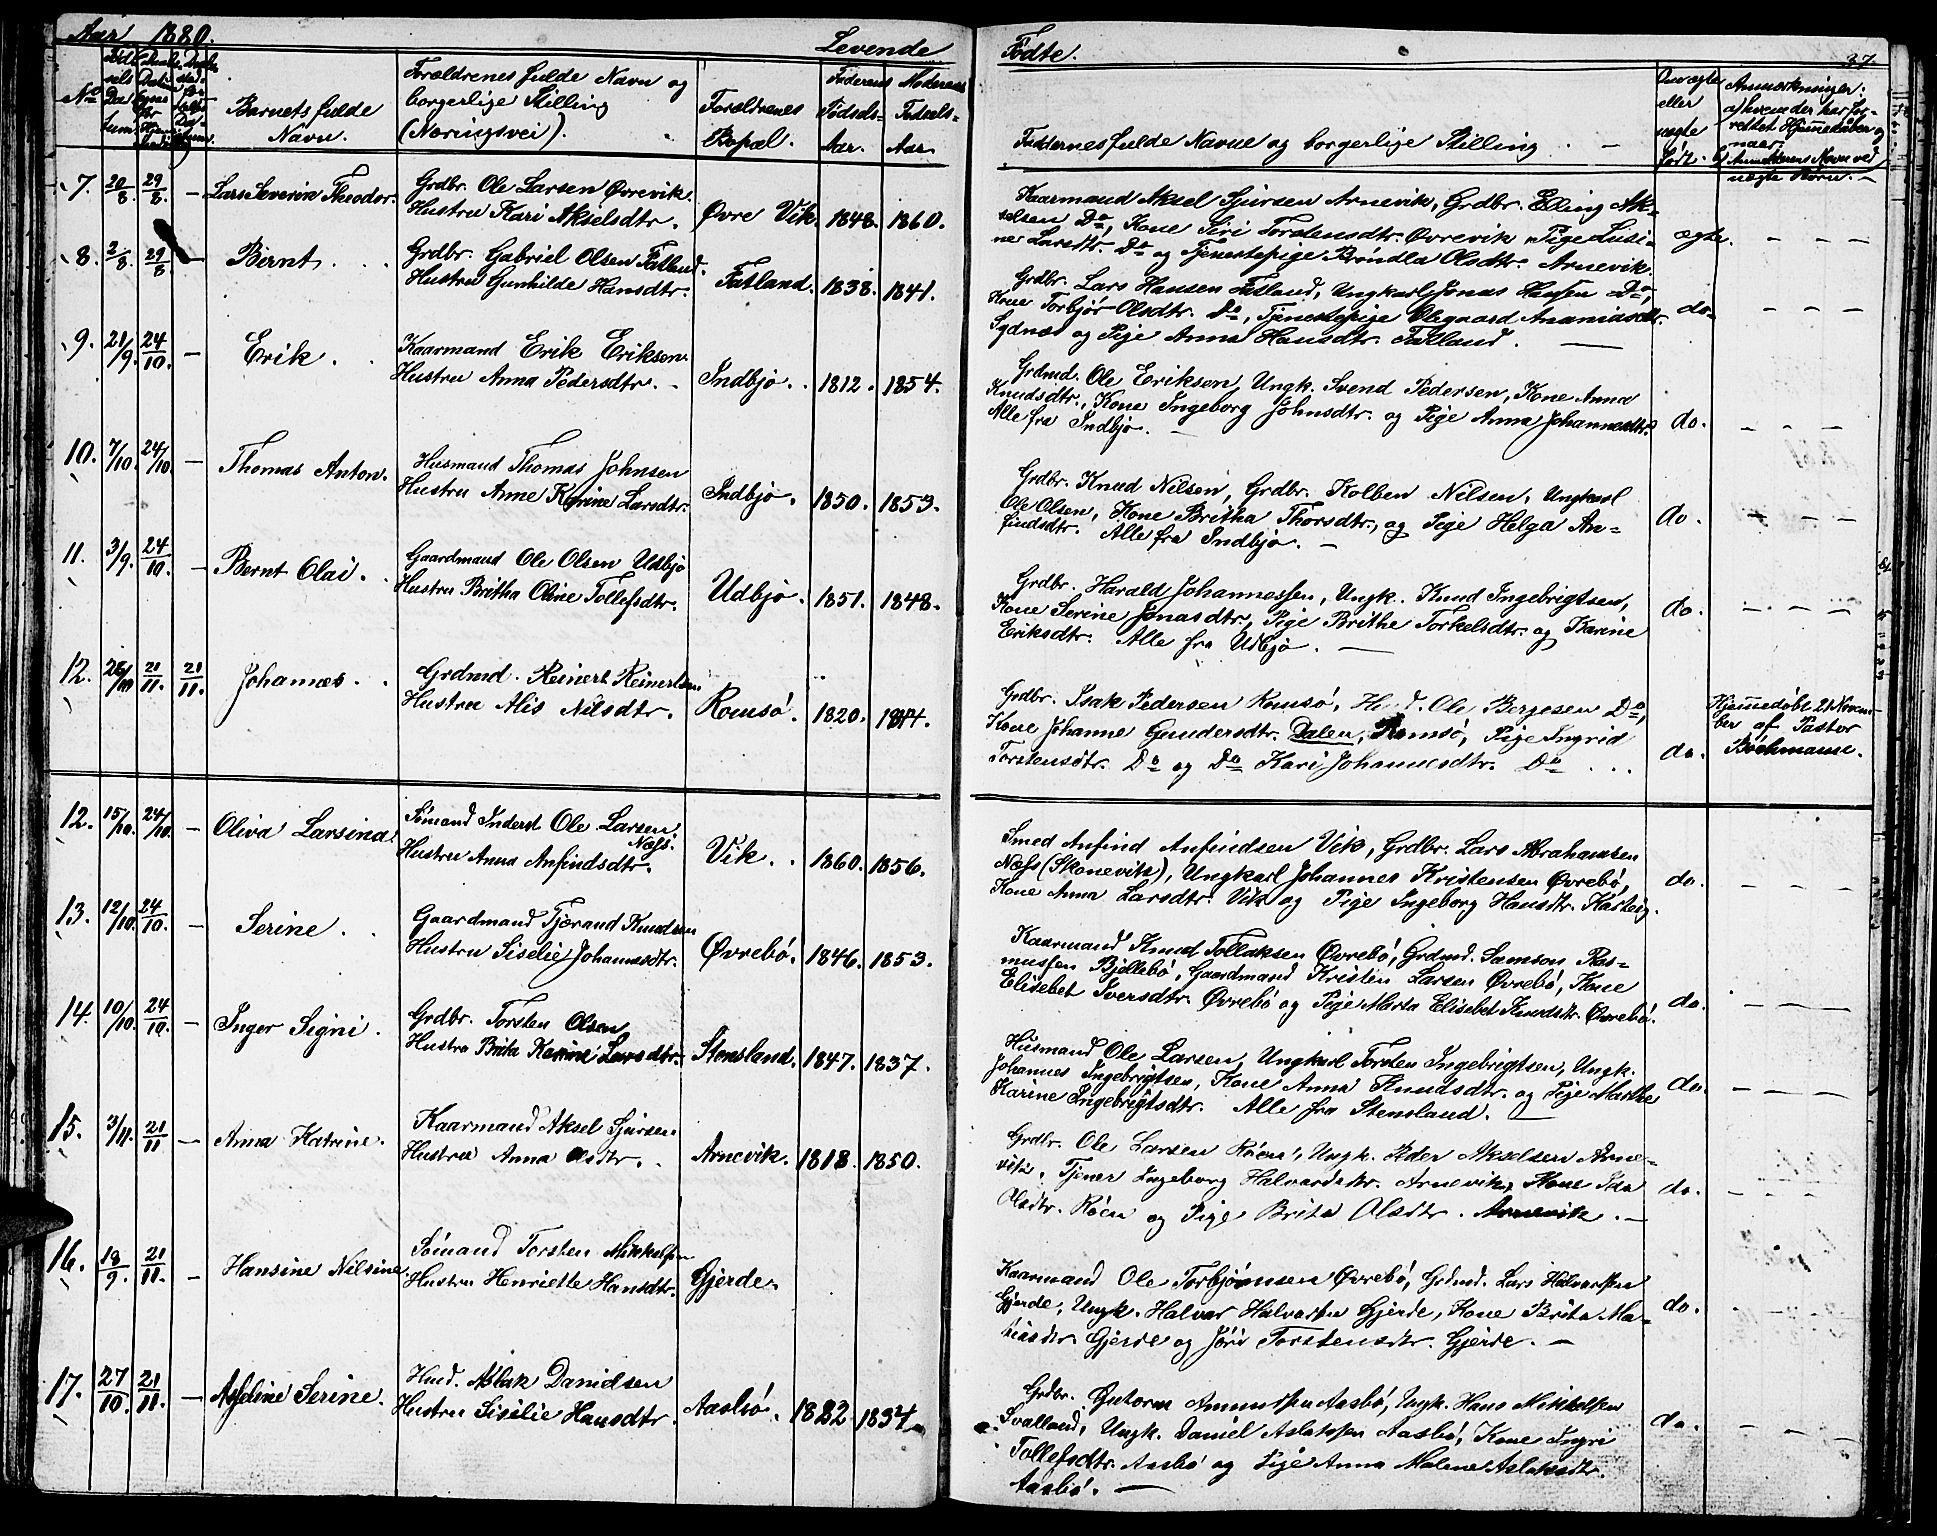 Aar 1880.
Levende
Fødte.
37.
No
Barnets fulde Navn.
Forældrenes fulde Navn og
borgerlige Stilling
(Næringsvei).
Forældrenes
Bopæl.
Faderens
Fødsels-
Aar.
Moderens
Fødsels-
Aar.
Faddernes fulde Navne og borgerlige Stilling
eller
ægte
født.
Anmærkninger:
7. 20/8 29/8 — Lars Severin Theodor.
Grdbr. Ole Larsen Øvrevik.
Hustru Kari Akselsdtr.
Øvre Vik. 1848. 1860.
Kaarmand Aksel Sjursen Arnevik, Grdbr. Elling Ak-
selsen Do, Kone Siri Torstensdtr. Øvrevik Pige Lusi-
ne Larsdtr. Do og Tjenestepige Brøndla Olsdtr. Arnevik.
ægte. — — —
8. 2/8 29/8 — Bernt.
Grdbr. Gabriel Olsen Fatland.
Hustru Gunhilde Hansdtr.
Fatland. 1838. 1841.
Grdbr. Lars Hansen Fatland, Ungkarl Jonas Hansen Do,
Kone Torbjør Olsdtr. Do, Tjenestepige Olegaard Ananiasdtr.
Sydnæs og Pige Anna Hansdtr. Fatland.
do. — — —
9. 21/9 24/10. — Erik.
Kaarmand Erik Eriksen
Hustru Anna Pedersdtr.
Indbjo. 1812. 1854.
Grdmd. Ole Eriksen, Ungk. Svend Pedersen, Kone Anna
Knudsdtr., Kone Ingeborg Johnsdtr. og Pige Anna Johannesdtr.
Alle fra Indbjo. —
do. — — —
10. 7/10. 24/10. — Thomas Anton.
Husmand Thomas Johnsen
Hustru Anne Karine Larsdtr.
Indbjo. 1850. 1853.
Grdbr. Knud Nilsen, Grdbr. Kolben Nilsen, Ungkarl
Ole Olsen, Kone Britha Thorsdtr., og Pige Helga An-
findsdtr. Alle fra Indbjo. —
do. — — —
11. 3/9. 24/10. — Bernt Olai.
Gaardmand Ole Olsen Udbjo
Hustru Britha Oline Tollefsdtr.
Udbjo. 1851. 1848.
Grdbr. Harald Johannessen, Ungk. Knud Ingebrigtsen,
Kone Serine Jonasdtr., Pige Brithe Torkelsdtr. og Karine
Eriksdtr. Alle fra Udbjo. —
do. — — —
12. 26/10 21/11. 21/11. Johannes.
Grdmd. Reinert Reinertsen
Hustru Alis Nilsdtr.
Romsö. 1820. 1844.
Grdbr. Isak Pedersen Romsö, Ole Bergesen Do,
Kone Johanne Gundersdtr. Dalen, Romsö, Pige Ingrid
Torstensdtr. Do og Do Kari Johannesdtr. Do
do.
Hjemmedøbt 21 Novem-
ber af Pastor
Bochmann.
12. 15/10. 24/10. — Oliva Larsina
Sömand Inderst Ole Larsen
Næss.
Hustru Anna Anfindsdtr.
Vik. 1860. 1856.
Smed Anfind Anfindsen Vik, Grdbr. Lars Abrahamsen
Næss (Skonevik), Ungkarl Johannes Kristensen Øvrebö,
Kone Anna Larsdtr. Vik og Pige Ingeborg Hansdtr. Kasteig.
do. — — —
13. 12/10. 24/10. — Serine.
Gaardmand Tjærand Knudsen
Hustru Siselie Johannesdtr.
Øvrebö. 1846. 1853.
Kaarmand Knud Tollaksen Øvrebö, Grdmd. Samson Ras-
mussen Bjellebö, Gaardmand Kristen Larsen Øvrebö, Kone
Elisebet Iversdtr. Øvrebö og Pige Marta Elisebet Knudsdtr. Øvrebö.
do. — — —
14. 10/10. 24/10. — Inger Signi.
Grdbr. Torsten Olsen
Hustru Brita Karine Larsdtr.
Stensland. 1847. 1837.
Husmand Ole Larsen, Ungkarl Torsten Ingebrigtsen, Ungk.
Johannes Ingebrigtsen, Kone Anna Knudsdtr. og Pige Marthe
Karine Ingebrigtsdtr. Alle fra Stensland. —
do. — — —
15. 3/11. 21/11 — Anna Katrine.
Kaarmand Aksel Sjursen
Hustru Anna Olsdtr.
Arnevik. 1818. 1850.
Grdbr. Ole Larsen Röen, Ungk. Peder Akselsen Arne-
vik. Tjener Ingeborg Halvardsdtr. Arnevik, Kone Ida
Olsdtr. Röen og Pige Brita Olsdtr. Arnevik. —
do. — — —
16. 18/9. 21/11. — Hansine Nilsine
Sömand Torsten Mikkelsen
Hustru Henriette Hansdtr.
Gjerde.
Kaarmand Ole Torbjörnsen Øvrebö, Grdmd. Lars Halvorsen
Gjerde, Ungk. Halvor Halvorsen Gjerde, Kone Brita Ma-
thiasdtr. Gjerde og Jöri Torstensdtr. Gjerde. —
do. — — —
17. 27/10. 21/11. — Asseline Serine.
Husd. Aslak Danielsen
Hustru Siselie Hansdtr.
Aasbö. 1832 1834
Grdbr. Guttorm Amundsen Aasbö, Ungk. Hans Mikkelsen
Svalland, Ungk. Daniel Aslaksen Aasbö, Kone Ingri
Tollefsdtr. Aasbö og Pige Anna Malene Aslaksdtr.
Aasbö. —
do. — — —